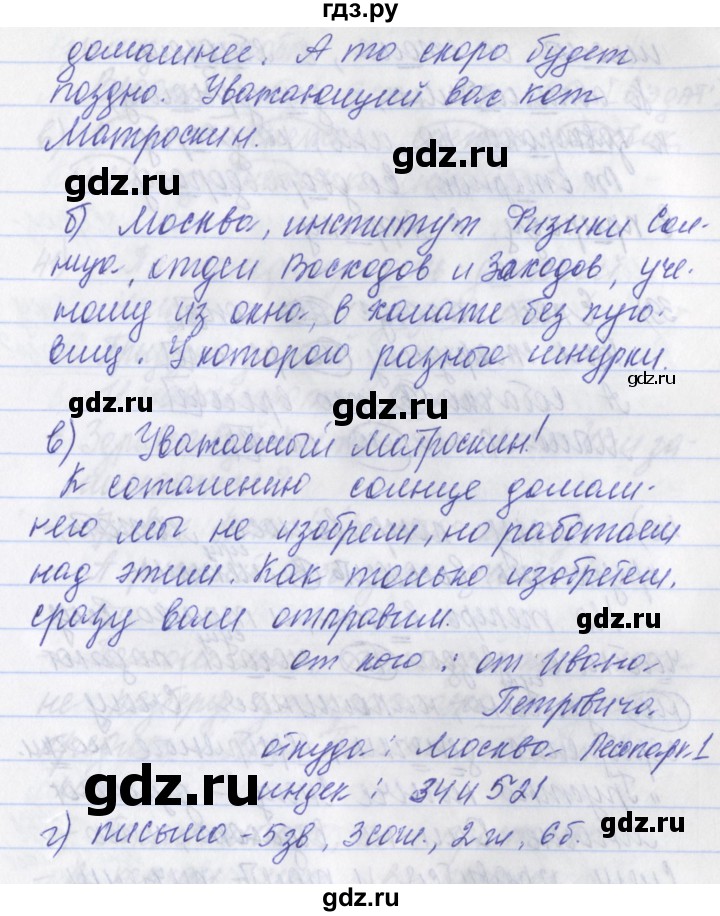 гдз.ру
домашнее. А то скоро будет
поздно. Уважающий вас кот
Матроскин.
gdz.ru
gdz.ru
б) Москва, институт Физики Сол-
нца, отдел Восходов и Заходов, уче-
ному из окна, в халате без пуго-
виц. У которого разного шнурки.
gdz.ru
gdz.ru
gdz.ru
в) Уважаемый Матроскин!
К сожалению солнце домаш-
него мы не изобрели, но работаем
над этим. Как только изобретем,
сразу вам отправим.
gdz.ru
от кого : от Ивана
Петровича.
откуда : Москва Лесопарк 1
gdz.ru
индек : 344521
gdz.ru
г) письмо - 5зв, 3сог., 2гл., 6б.
gdz.ru